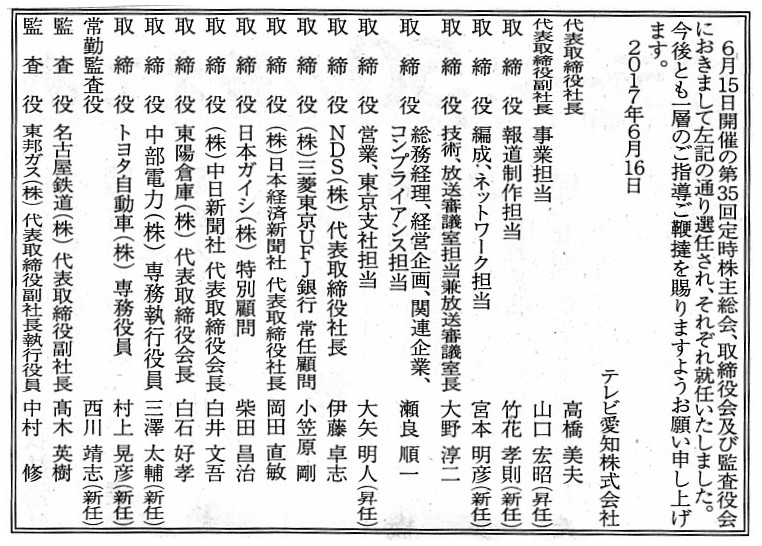 ６月15日開催の第35回定時株主総会、取締役会及び監査役会
におきまして左記の通り選任され、それぞれ就任いたしました。
今後とも一層のご指導ご鞭撻を賜りますようお願い申し上げ
ます。
２０１７年６月１６日
テレビ愛知株式会社
代表取締役社長 高橋 美夫
代表取締役副社長 事業担当 山口 宏昭(昇任)
取締役 報道制作担当 竹花 孝則(新任)
取締役 編成、ネットワーク担当 宮本 明彦(新任)
取締役 技術、放送審議室担当兼放送審議室長 大野 淳二
取締役 総務経理、経営企画、関連企業、
コンプライアンス担当 瀬良 順一
取締役 営業、東京支社担当 大矢 明人(昇任)
取締役 NDS(株) 代表取締役社長 伊藤 卓志
取締役 (株)三菱東京UFJ銀行 常任顧問 小笠原 剛
取締役 (株)日本経済新聞社 代表取締役社長 岡田 直敏
取締役 日本ガイシ(株) 特別顧問 柴田 昌治
取締役 (株)中日新聞社 代表取締役会長 白井 文吾
取締役 東陽倉庫(株) 代表取締役会長 白石 好孝
取締役 中部電力(株) 専務執行役員 三澤 太輔(新任)
取締役 トヨタ自動車(株) 専務役員 村上 晃彦(新任)
常勤監査役 西川 靖志(新任)
監査役 名古屋鉄道(株) 代表取締役副社長 髙木 英樹
監査役 東邦ガス(株) 代表取締役副社長執行役員 中村 修